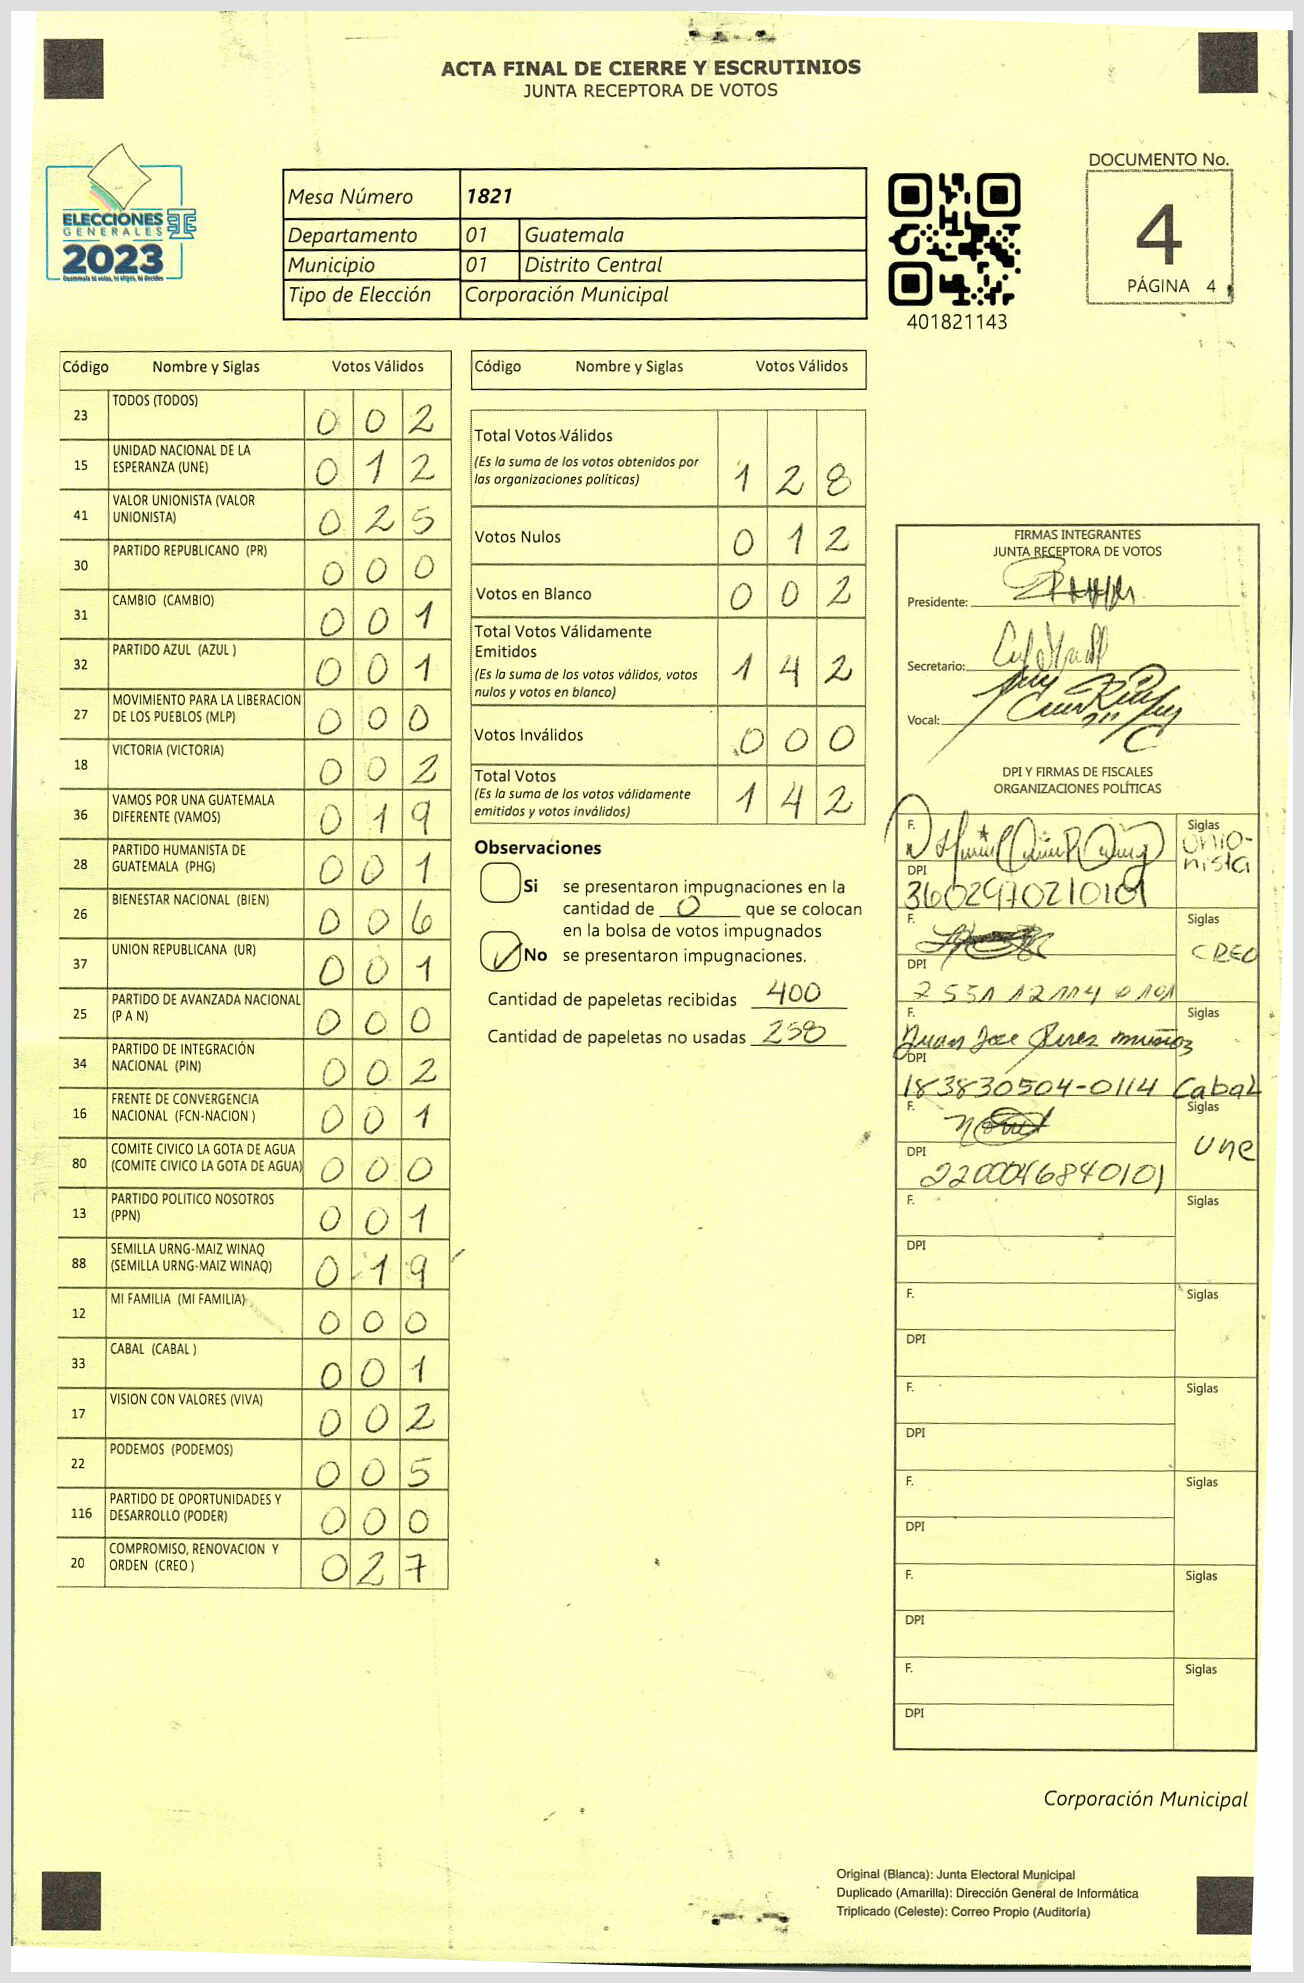 ACTA FINAL DE CIERRE Y ESCRUTINIOS
JUNTA RECEPTORA DE VOTOS
ELECCIONES
GENERALES
2023
Mesa Número 1821
Departamento 01 Guatemala
Municipio 01 Distrito Central
Tipo de Elección Corporación Municipal
401821143
DOCUMENTO No.
4
PÁGINA 4
Código Nombre y Siglas Votos Válidos
23 TODOS (TODOS) 0 0 2
15 UNIDAD NACIONAL DE LA
ESPERANZA (UNE) 0 1 2
41 VALOR UNIONISTA (VALOR
UNIONISTA) 0 2 5
30 PARTIDO REPUBLICANO (PR) 0 0 0
31 CAMBIO (CAMBIO) 0 0 1
32 PARTIDO AZUL (AZUL ) 0 0 1
27 MOVIMIENTO PARA LA LIBERACION
DE LOS PUEBLOS (MLP) 0 0 0
18 VICTORIA (VICTORIA) 0 0 2
36 VAMOS POR UNA GUATEMALA
DIFERENTE (VAMOS) 0 1 9
28 PARTIDO HUMANISTA DE
GUATEMALA (PHG) 0 0 1
26 BIENESTAR NACIONAL (BIEN) 0 0 6
37 UNION REPUBLICANA (UR) 0 0 1
25 PARTIDO DE AVANZADA NACIONAL
(P A N) 0 0 0
34 PARTIDO DE INTEGRACIÓN
NACIONAL (PIN) 0 0 2
16 FRENTE DE CONVERGENCIA
NACIONAL (FCN-NACION ) 0 0 1
80 COMITE CIVICO LA GOTA DE AGUA
(COMITE CIVICO LA GOTA DE AGUA) 0 0 0
13 PARTIDO POLITICO NOSOTROS
(PPN) 0 0 1
88 SEMILLA URNG-MAIZ WINAQ
(SEMILLA URNG-MAIZ WINAQ) 0 19
12 MI FAMILIA (MI FAMILIA) 0 0 0
33 CABAL (CABAL ) 0 0 1
17 VISION CON VALORES (VIVA) 0 0 2
22 PODEMOS (PODEMOS) 0 0 5
116 PARTIDO DE OPORTUNIDADES Y
DESARROLLO (PODER) 0 0 0
20 COMPROMISO, RENOVACION Y
ORDEN (CREO ) 0 2 7
Código Nombre y Siglas Votos Válidos
Total Votos Válidos
(Es la suma de los votos obtenidos por
las organizaciones políticas) 1 2 8
Votos Nulos 0 1 2
Votos en Blanco 0 0 2
Total Votos Válidamente
Emitidos
(Es la suma de los votos válidos, votos
nulos y votos en blanco) 1 4 2
Votos Inválidos 0 0 0
Total Votos
(Es la suma de los votos válidamente
emitidos y votos inválidos) 1 4 2
Observaciones
Si se presentaron impugnaciones en la
cantidad de 0 que se colocan
en la bolsa de votos impugnados
No se presentaron impugnaciones.
Cantidad de papeletas recibidas 400
Cantidad de papeletas no usadas 258
FIRMAS INTEGRANTES
JUNTA RECEPTORA DE VOTOS
Presidente:
Secretario:
Vocal:
DPI Y FIRMAS DE FISCALES
ORGANIZACIONES POLÍTICAS
F. Siglas
Unio-
nista
DPI
3602970210101
F. Siglas
CREO
DPI
2551 12114 0101
F. Siglas
Juan Jose Perez muñoz
DPI
183830504-0114 Cabal
F. Siglas
Une
DPI
2200046840101
F. Siglas
DPI
F. Siglas
DPI
F. Siglas
DPI
F. Siglas
DPI
F. Siglas
DPI
F. Siglas
DPI
Corporación Municipal
Original (Blanca): Junta Electoral Municipal
Duplicado (Amarilla): Dirección General de Informática
Triplicado (Celeste): Correo Propio (Auditoría)